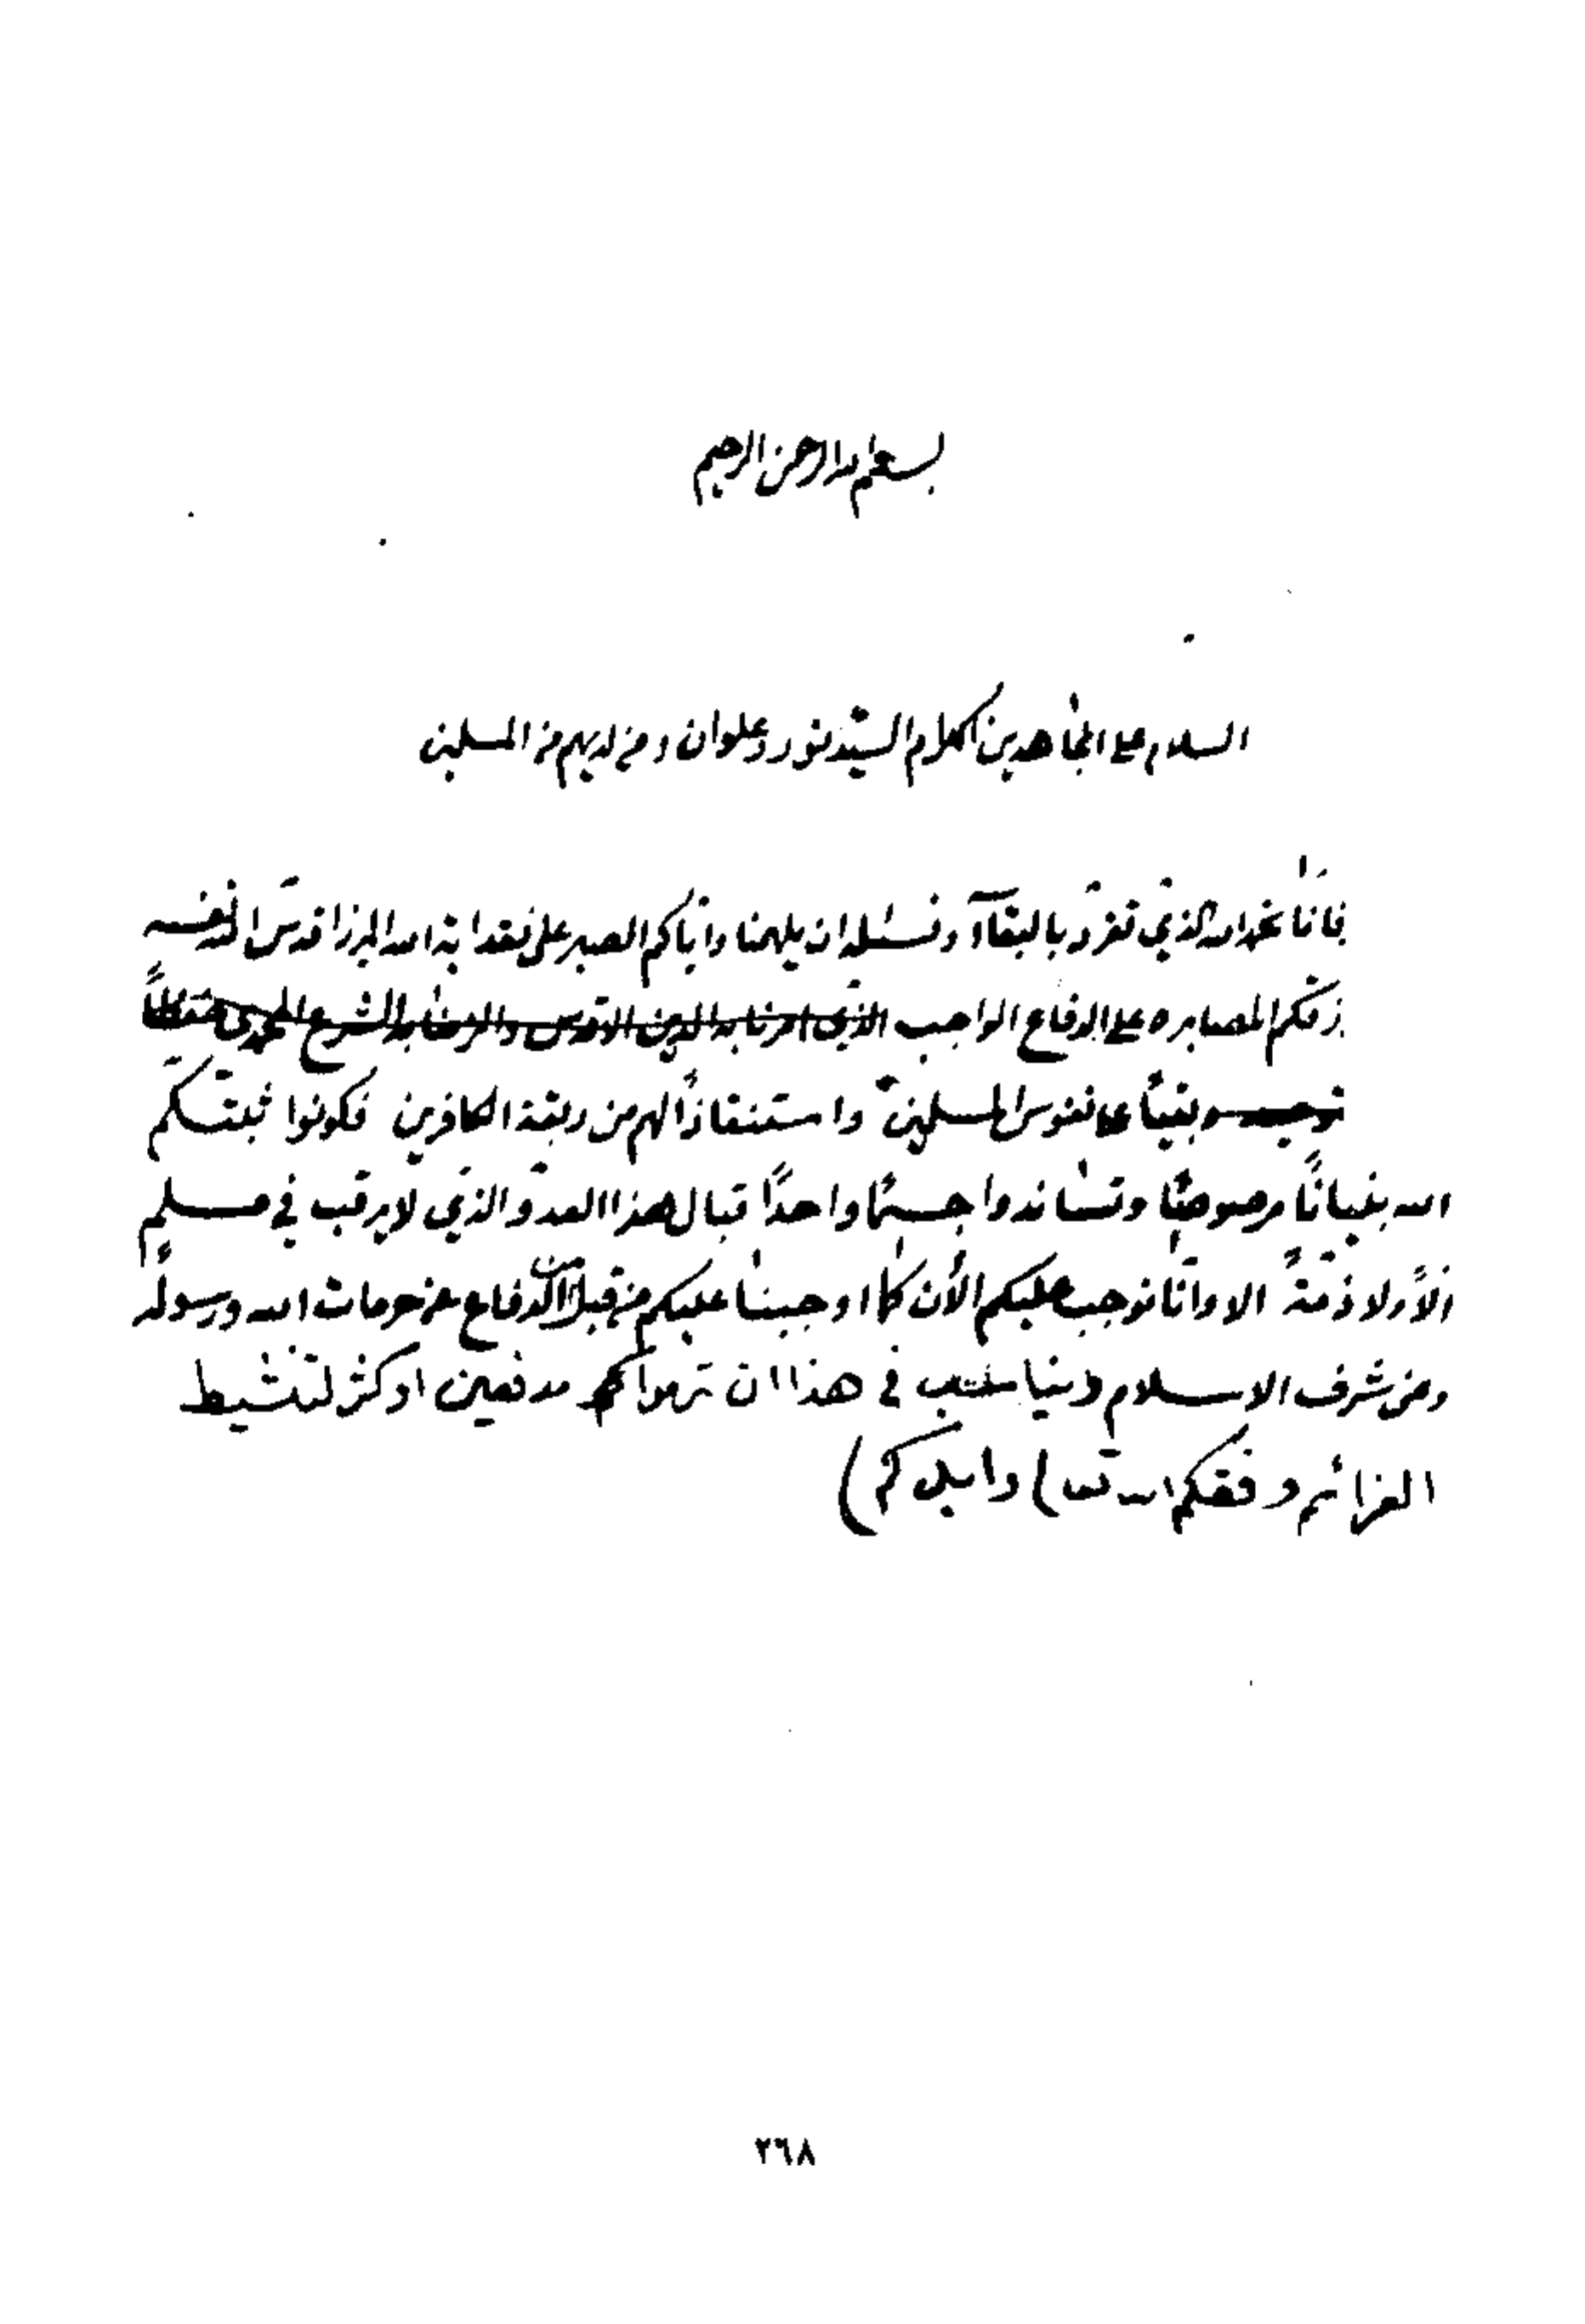 بسم الله الرحمن الرحيم
السلام على المجاهدين الكرام السيد نور وعلوان ومن لديهم من المسلمين
فانا نحمد الله الذي تفرد بالبقاء ونسئله ان يلهمنا واياكم الصبر على فقد اية الله الميرزا قدس الله نفسه
رقكم المصابره على الدفاع الواجب الذي امرنا به الدين الاقدس
بقياً على نفوس المسلمين واستنقاذاً لهم من ربقة الكافرين فكونوا ثبتكم
الله بنياناً مرصوصاً وتساندوا جسماً واحداً قبال هذا العدو الذي لا يرقب في مسلم
الاً ولا ذمةً الا وانا نوجب عليكم الأن كما اوجبنا عليكم من قبل الدفاع عن حرمات الله ورسوله
وعن شرف الاسلام في هذا ان مدفعين او اكثر لتنشيط
العزائم وفقكم الله تعالى وايدكم
٢٦٨